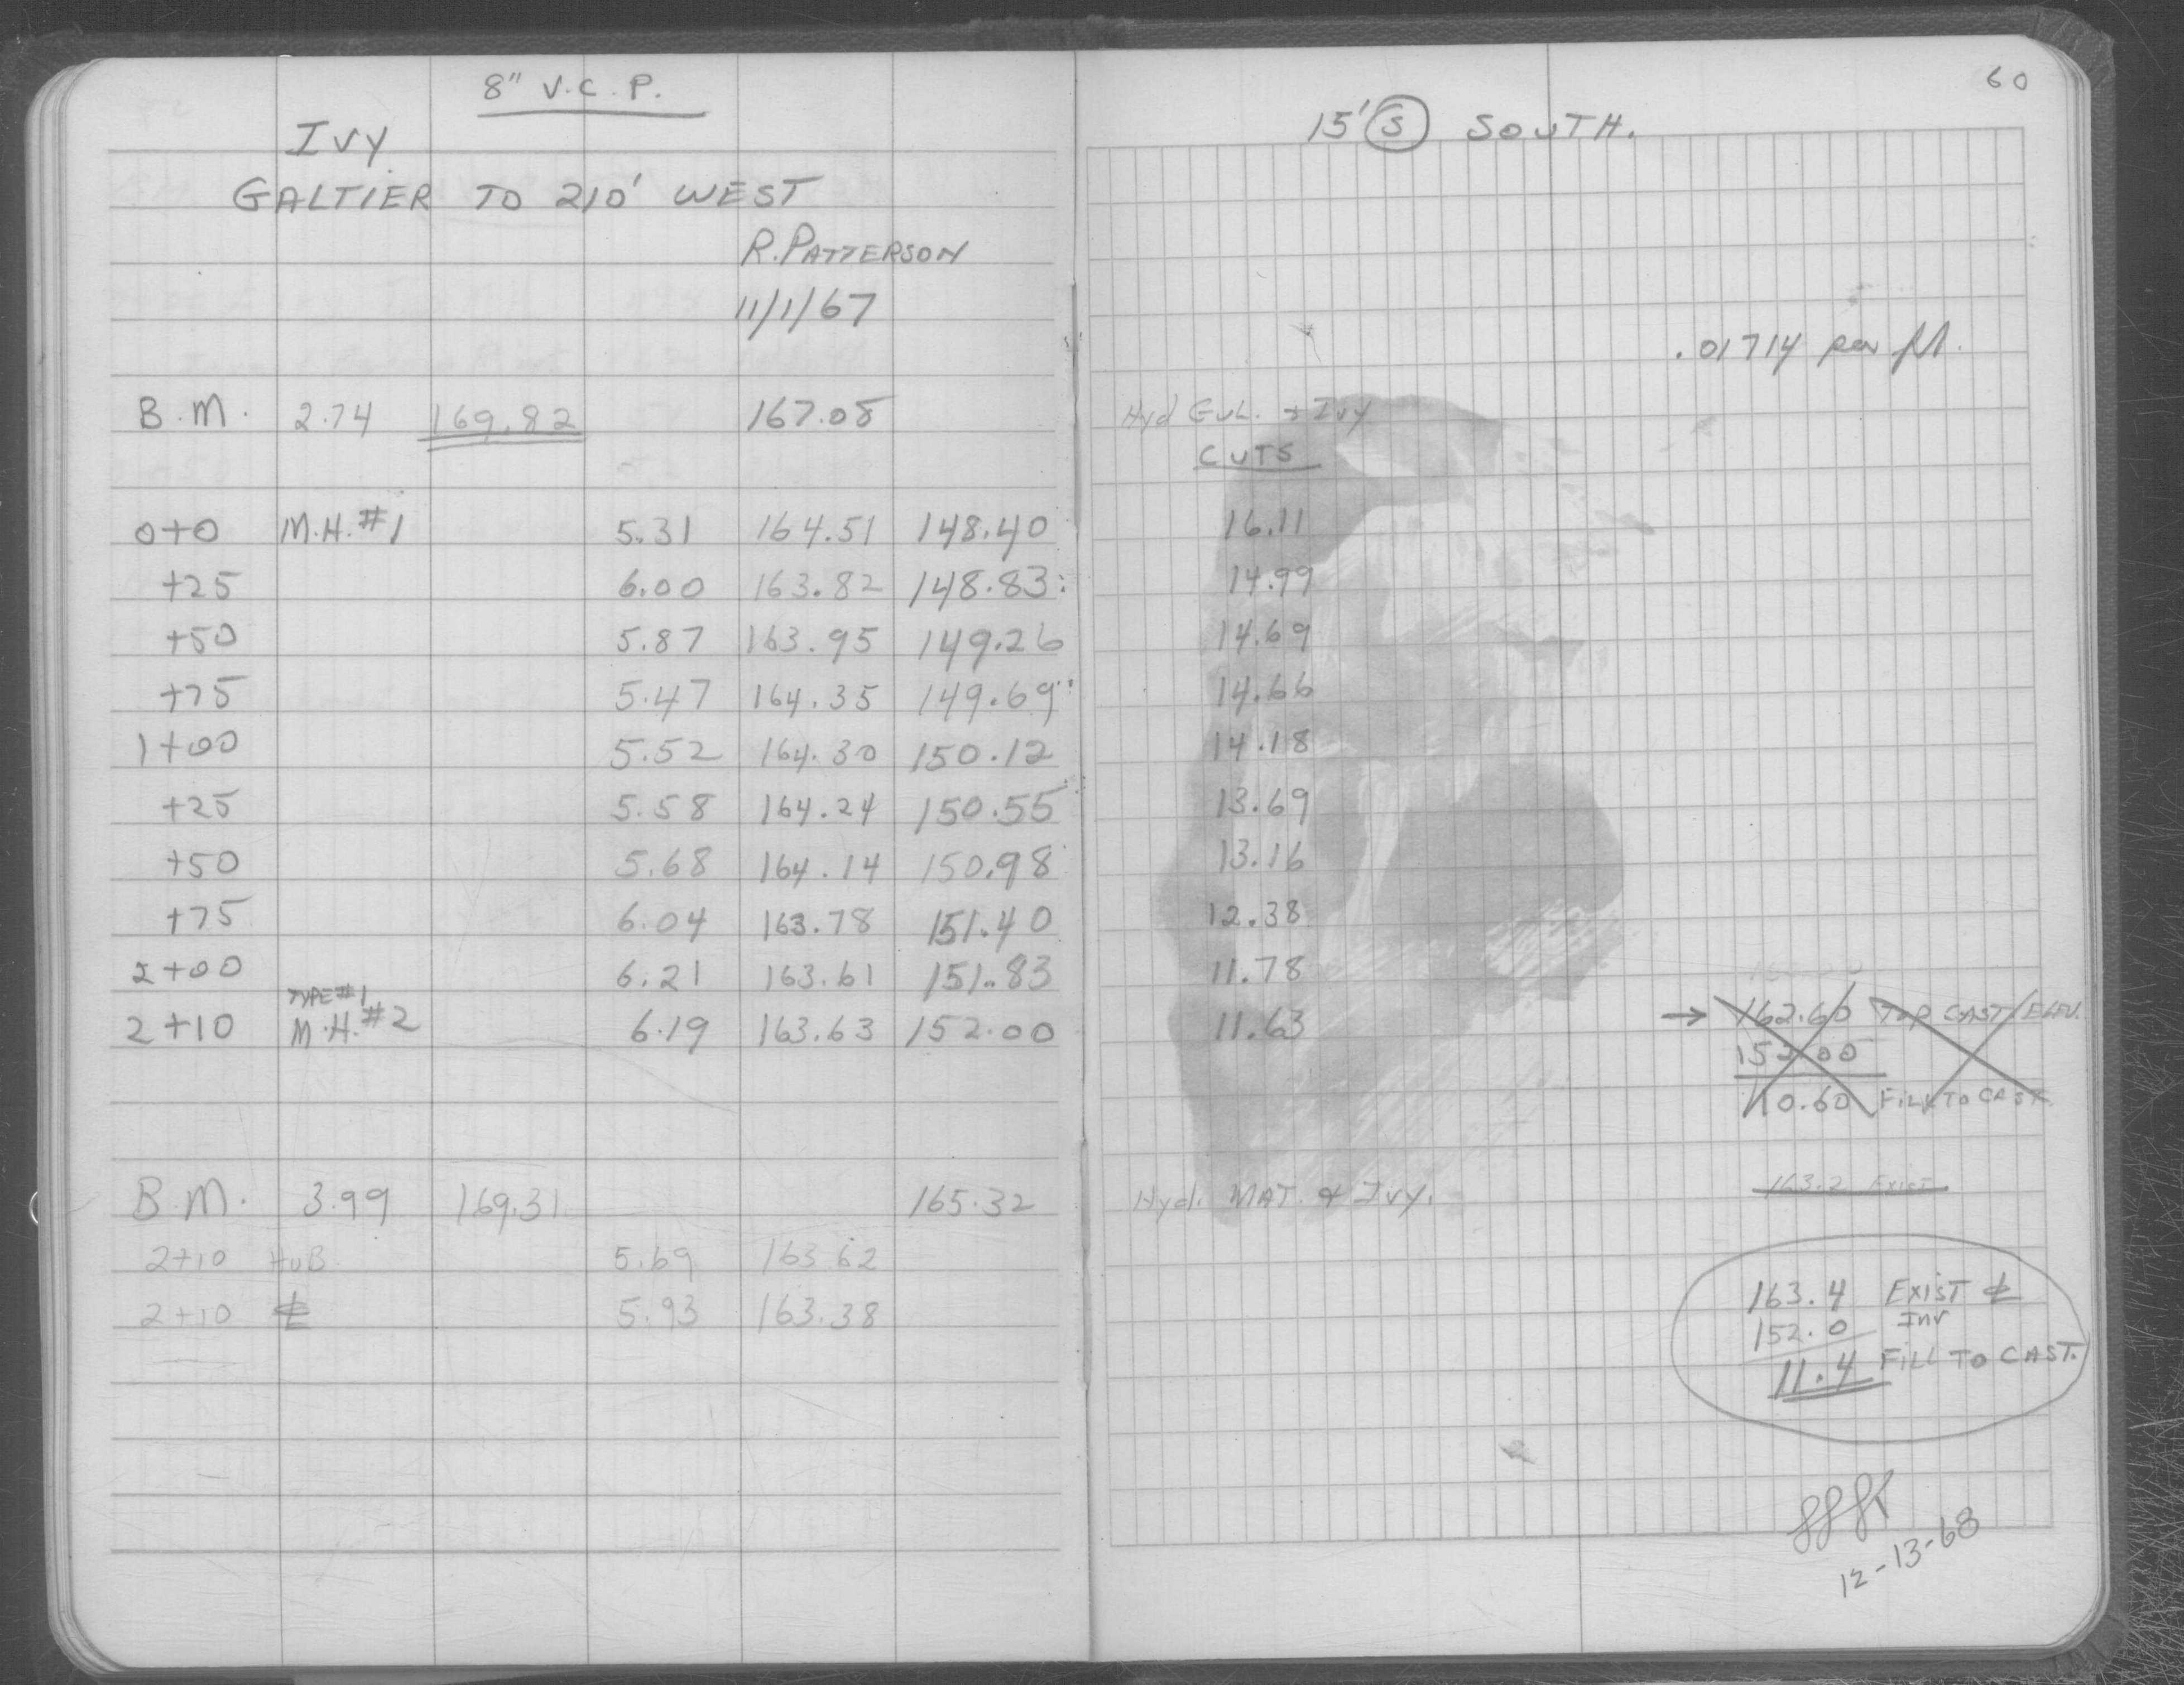 8" V.C.P.
IVY
GALTIER TO 210' WEST
R. PATTERSON
11/1/67
B.M. 2.74 169.82 167.08
0+0 M.H. #1 5.31 164.51 148.40
+25 6.00 163.82 148.83
+50 5.87 163.95 149.26
+75 5.47 164.35 149.69
1+00 5.52 164.30 150.12
+25 5.58 164.24 150.55
+50 5.68 164.14 150.98
+75 6.04 163.78 151.40
2+00 6.21 163.61 151.83
TYPE #1
2+10 M.H. #2 6.19 163.63 152.00
B.M. 3.99 169.31 165.32
2+10 HUB 5.69 163.62
2+10 ℄ 5.93 163.38
60
15' S SOUTH.
.01714 per ft.
Hyd & Ivy
CUTS
16.11
14.99
14.69
14.66
14.18
13.69
13.16
12.38
11.78
11.63
→ 162.60 TOP CAST ELEV.
152.00
10.60 FILL TO CAST
Hyd. MAT. & IVY.
163.2 EXIST
163.4 EXIST ℄
152.0 Inv
11.4 FILL TO CAST.
12-13-68